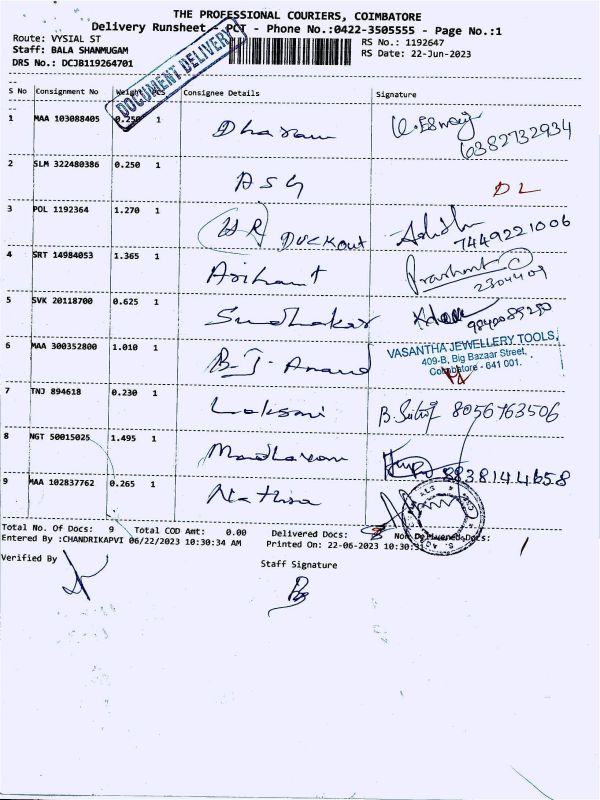 THE PROFESSIONAL COURIERS, COIMBATORE
Delivery Runsheet - PCT - Phone No.:0422-3505555 - Page No.:1
Route: VYSIAL ST
RS No.: 1192647
Staff: BALA SHANMUGAM
RS Date: 22-Jun-2023
DRS No.: DCJB119264701
DOCUMENT DELIVERY
S No Consignment No Weight PCS Consignee Details Signature
1 MAA 103088405 0.250 1 Dharam
6382732934
2 SLM 322480386 0.250 1 ASG DL
3 POL 1192364 1.270 1 WR Duckout
7449221006
4 SRT 14984053 1.365 1 Arihant Prashant
2304409
5 SVK 20118700 0.625 1 Sudhakar
9840085250
6 MAA 300352800 1.010 1 B-J. Anand
VASANTHA JEWELLERY TOOLS,
409-B, Big Bazaar Street,
Coimbatore - 641 001.
7 TNJ 894618 0.230 1 Laksmi 8056763506
8 NGT 50015025 1.495 1 Madhavan 8838144658
9 MAA 102837762 0.265 1 Nathra
Total No. Of Docs: 9 Total COD Amt: 0.00 Delivered Docs: 8 Non Delivered Docs: 1
Entered By :CHANDRIKAPVI 06/22/2023 10:30:34 AM Printed On: 22-06-2023 10:30:31
Verified By
Staff Signature